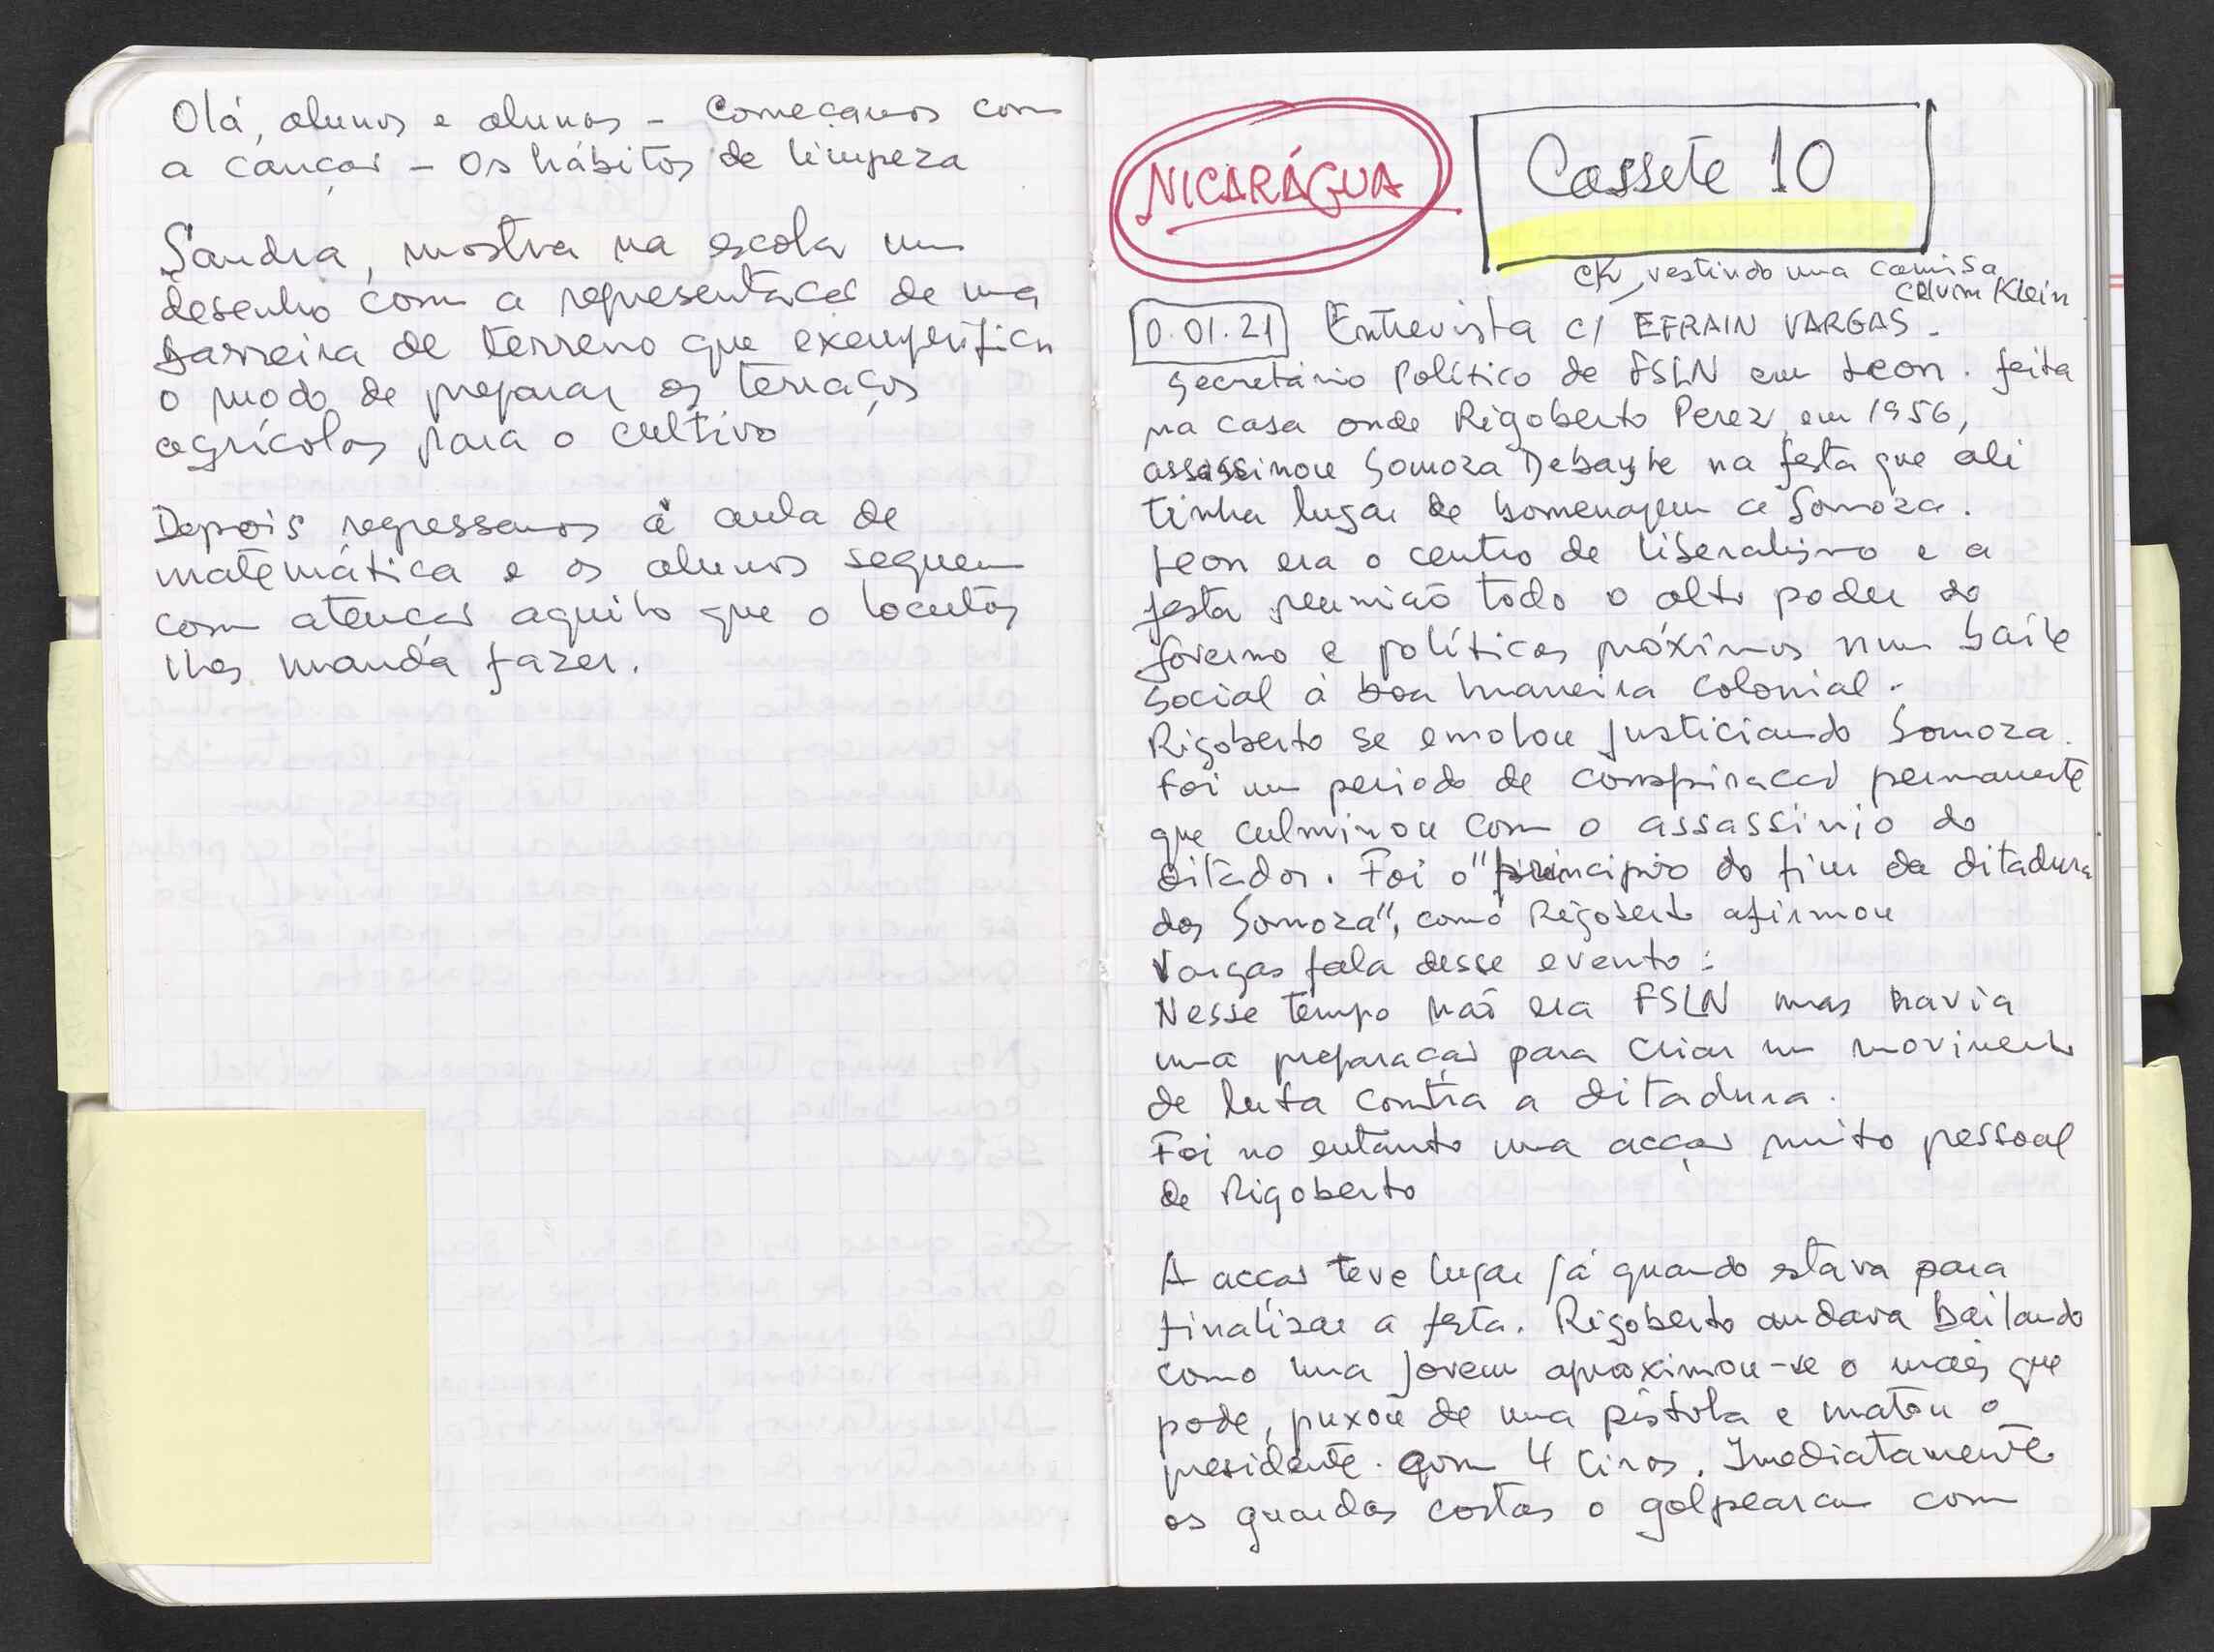 Olá, alunos e alunas - Começamos com
a canção - Os hábitos de limpeza
Sandra, mostra na escola um
desenho com a representação de uma
barreira de terreno que exemplifica
o modo de preparar os terraços
agrícolas para o cultivo
Depois regressamos à aula de
matemática e os alunos seguem
com atenção aquilo que o locutor
lhes manda fazer.
NICARÁGUA
Cassete 10
CK, vestindo uma camisa
Calvim Klein
0.01.21 Entrevista c/ EFRAIN VARGAS -
Secretário Político de FSLN em Leon. feita
na casa onde Rigoberto Perez, em 1956,
assassinou Somoza Debayle na festa que ali
tinha lugar de homenagem a Somoza.
Leon era o centro de liberalismo e a
festa reunião todo o alto poder do
Governo e políticos próximos num baile
social à boa maneira colonial.
Rigoberto se emolou justiciando Somoza.
Foi um periodo de conspiração permanente
que culminou com o assassinio do
ditador. Foi o "principio do fim da ditadura
dos Somoza", como Rigoberto afirmou
Vargas fala desse evento:
Nesse tempo não era FSLN mas havia
uma preparação para criar um movimento
de luta contra a ditadura.
Foi no entanto uma acção muito pessoal
de Rigoberto
A acção teve lugar já quando estava para
finalizar a festa. Rigoberto andava bailando
como uma jovem aproximou-se o mais que
pode, puxou de uma pistola e matou o
presidente. com 4 tiros. Imediatamente
os guardas costas o golpearam com